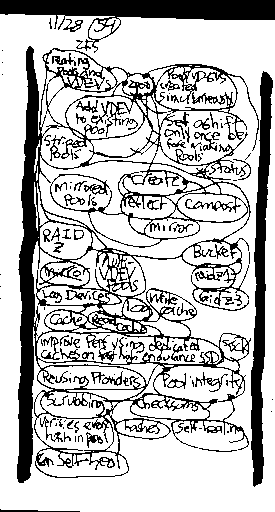 11/28 54
ZFS
Creating
Pools and
VDEVs
zpool
Pools VDEVs
created
simultaneously
Add VDEV
to existing
pool
Set ashift
only once be
fore making
Pools
Striped
Pools
status
Mirrored
Pools
create
reflect
mirror
RAID
Z
Bucket
Mirror
VDEV
Pools
raidz2
raidz3
Log Devices
Write
cache
Cache
Read
cache
Improve Perf using dedicated
caches on high endurance SSD
Reusing
Pool integrity
Scrubbing
checksums
Verifies every
hash in pool
hashes
self-healing
can self-heal